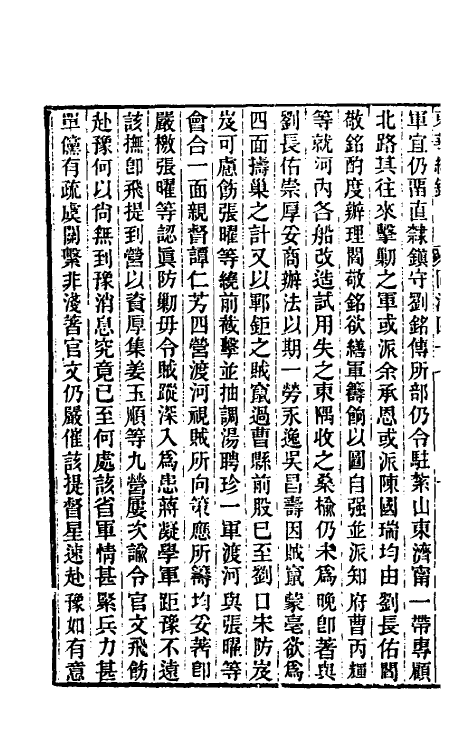 軍宜仍留直隸鎮守劉銘傳所部仍令駐紮山東濟甯一帶專顧
北路其往來擊勦之軍或派余承恩或派陳國瑞均由劉長佑閻
敬銘酌度辦理閻敬銘欲繕軍籌餉以圖自强並派知府曹丙輝
等就河內各船改造試用失之東隅收之桑榆仍未為晚卽著與
劉長佑崇厚妥商辦法以期一勞永逸吳昌壽因賊竄蒙亳欲爲
四面擣巢之計又以鄆鉅之賊竄過曹縣前股已至劉口宋防岌
岌可慮飭張曜等繞前截擊並抽調湯聘珍一軍渡河與張曜等
會合一面親督譚仁芳四營渡河視賊所向策應所籌均妥著卽
嚴檄張曜等認眞防勦毋令賊蹤深入爲患蔣凝學軍距豫不遠
該撫卽飛提到營以資厚集姜玉順等九營屢次諭令官文飛飭
赴豫何以尙無到豫消息究竟已至何處該省軍情甚緊兵力甚
單儻有疏虞關繫非淺著官文仍嚴催該提督星速赴豫如有意